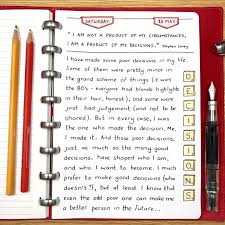 SATURDAY
18 MAY
"I AM NOT A PRODUCT OF MY CIRCUMSTANCES,
I AM A PRODUCT OF MY DECISIONS." Stephen Covey
I have made some poor decisions in my life.
Some of them were pretty minor in
the grand scheme of things (it was
the 80's - everyone had blonde highlights
in their hair, honest), and some were
just bad judgement (and not to be
shared). But in every case, I was
the one who made the decision, Me,
I made it. And those poor decisions,
just as much as the many good
decisions, have shaped who I am,
and who I want to become. I much
prefer to make good decisions (who
doesn't?), but at least I know that
even the odd poor one can make me
a better person in the future...
DECISIONS